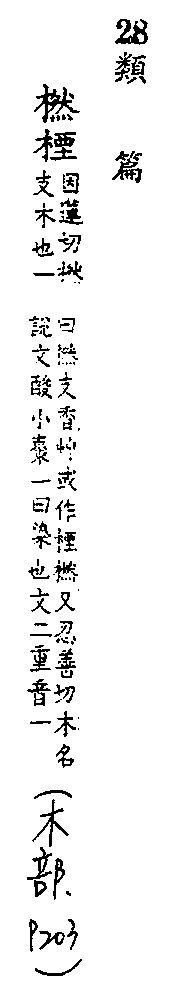 28類篇
橪
因蓮切橪
支木也一
曰橪支香艸或作橪又忍善切木名
說文酸小棗一曰染也文二重音一
(木部. P203)